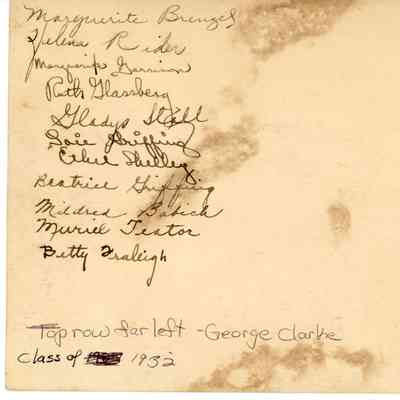 Marguerite Brenzel
Helena Rider
Marguerite Garrison
Ruth Glassberg
Gladys Stall
Soie Griffing
Ethel Shelley
Beatrice Griffing
Mildred Babich
Muriel Teator
Betty Fraleigh
Top row far left - George Clarke
Class of 1932